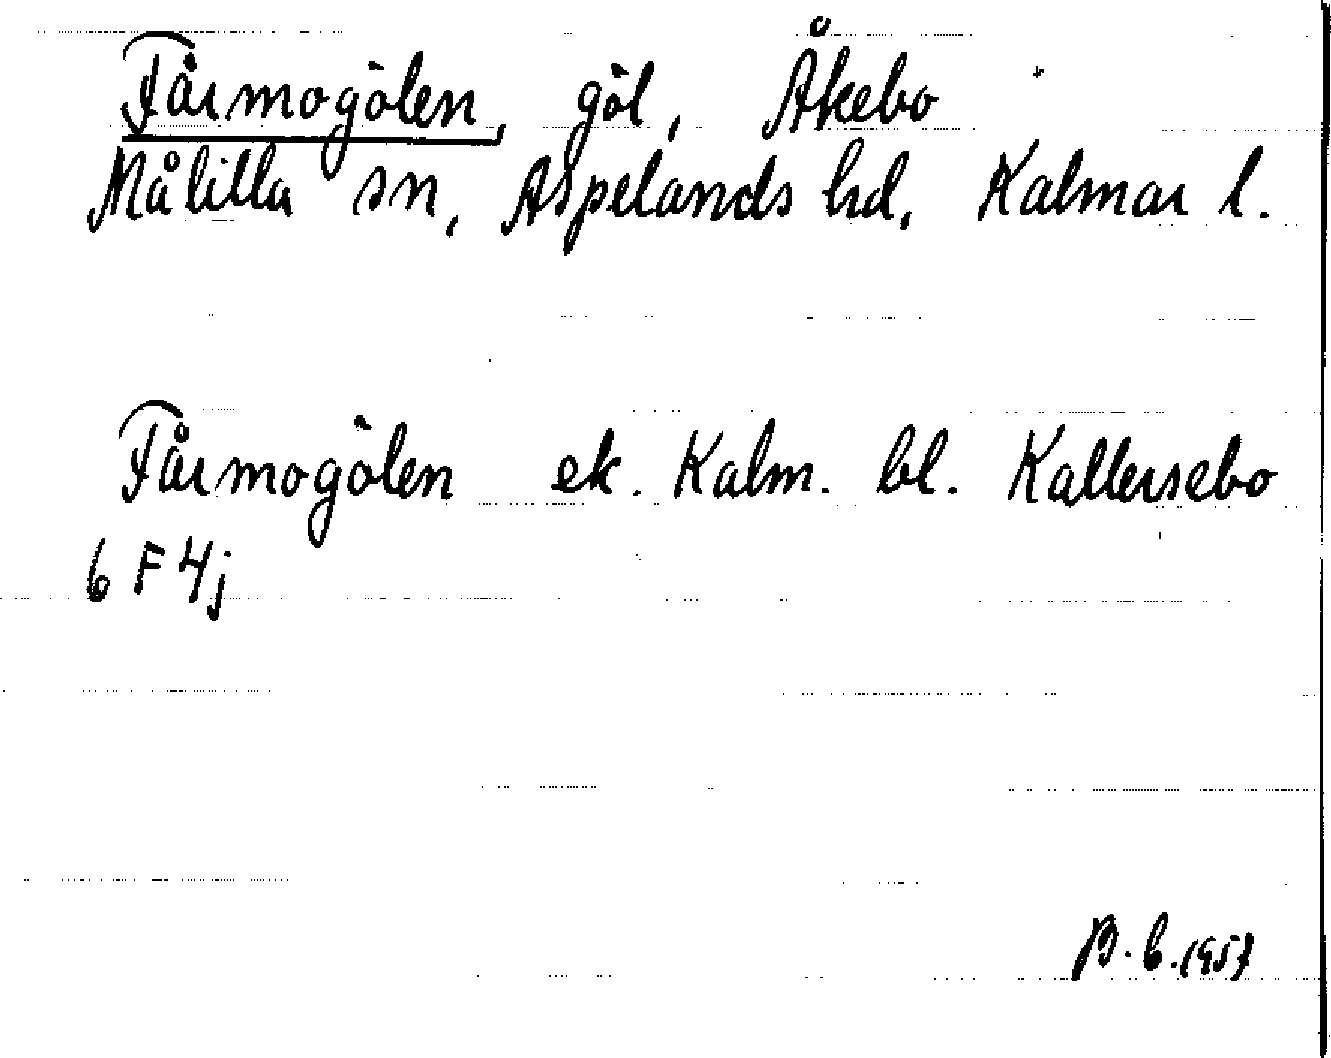 Fårmogölen, göl, Åkebo
Målilla sn, Aspelands hd, Kalmar l.
Fårmogölen ek. Kalm. bl. Kallersebo
6 F 4j
B. C. 1957